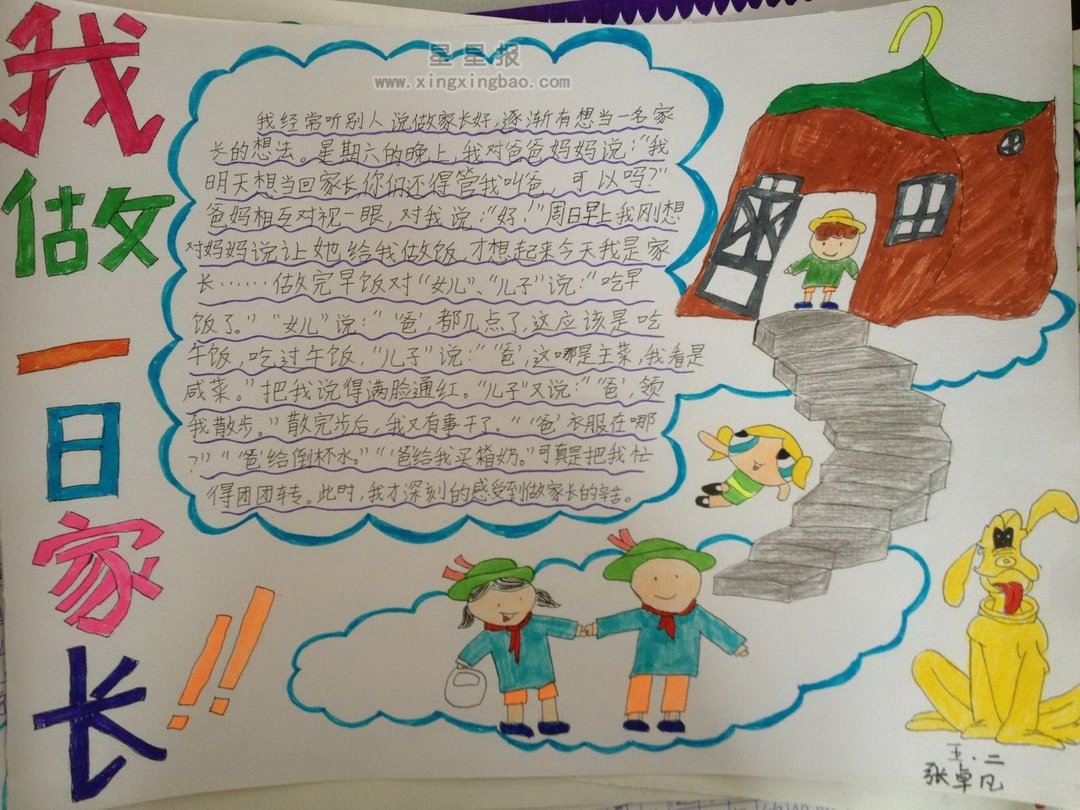 我做一日家长!!
星星报
www.xingxingbao.com
我经常听别人说做家长好,逐渐有想当一名家
长的想法。星期六的晚上,我对爸爸妈妈说:“我
明天想当回家长你们还得管我叫爸,可以吗?”
爸妈相互对视一眼,对我说:“好!”周日早上我刚想
对妈妈说让她给我做饭,才想起来今天我是家
长……做完早饭对“女儿”、“儿子”说:“吃早
饭了。”“女儿”说:“‘爸’,都几点了,这应该是吃
午饭,吃过午饭,“儿子”说:“‘爸’,这哪是主菜,我看是
咸菜。”把我说得满脸通红。“儿子”又说:“‘爸’,领
我散步。”散完步后,我又有事干了。“‘爸’衣服在哪
?”“‘爸’给倒杯水。”“‘爸’给我买箱奶。”可真是把我忙
得团团转。此时,我才深刻的感受到做家长的辛苦。
五·二
张卓凡